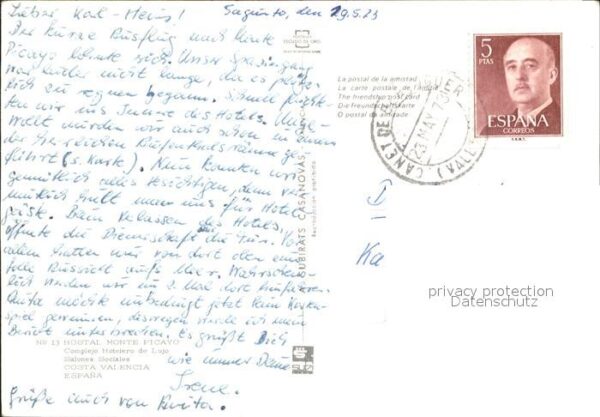 Lieber Karl-Heinz!
Sagunto, den 29.5.73
Der kurze Ausflug nach Monte
Picayo lohnte sich. Unser Spaziergang
war leider nicht lange, da es plötz-
lich zu regnen begann. Schnell
wir uns Innere des Hotels.
wurden wir auch schon in einen
der herrlichen
geführt (s. Karte). Nun konnten wir
gemütlich alles besichtigen, denn ver-
mutlich hielt man uns für Hotel-
gäste. Beim Verlassen des Hotels
öffnete die Dienerschaft die Tür. Vor
allem hatten wir von dort oben eine
tolle Aussicht aufs Meer. Wahrschein-
lich werden wir ein 2. Mal dort hinfahren.
Anita möchte unbedingt jetzt beim Karten-
spiel gewinnen, deswegen werde ich meinen
Bericht unterbrechen. Es grüßt Dich
wie immer Deine
Irene.
Grüße auch von Anita.
Nº 13 HOSTAL MONTE PICAYO
Complejo Hotelero de Lujo
Salones Sociales
COSTA VALENCIA
ESPAÑA
SUBIRATS CASANOVAS,
Reproducción prohibida
La postal de la amistad
La carte postale de l'amitié
The friendship post card
Die Freundschaftskarte
O postal da amizade
5
PTAS
ESPAÑA
CORREOS
F.N.M.T.
CANET DE
23 MAY 73
(VALE
I
Ka
privacy protection
Datenschutz